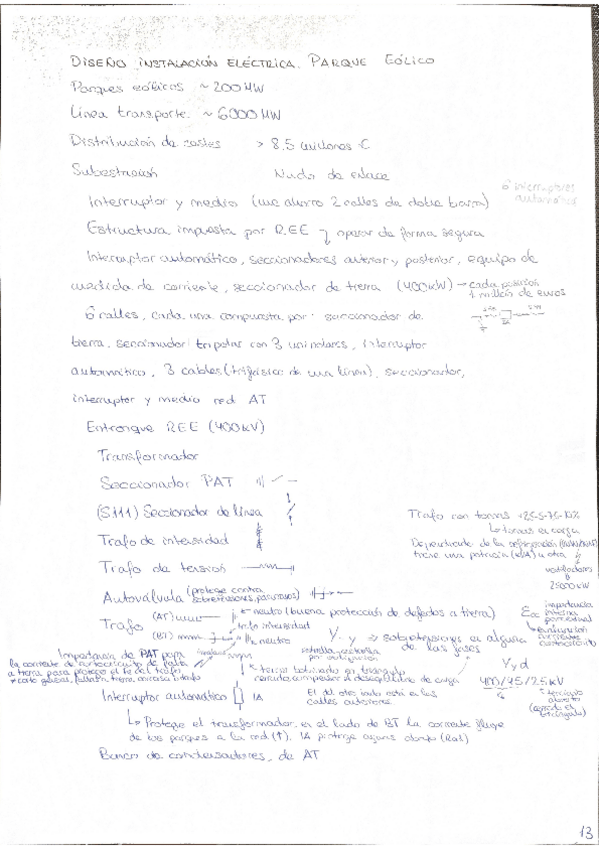 DISEÑO INSTALACIÓN ELÉCTRICA. PARQUE EÓLICO
Parques eólicos ~ 200 MW
Línea transporte ~ 6000 MW
Distribución de costes > 8,5 millones €
Subestación Nudo de enlace
6 interruptores automáticos
Interruptor y medio (me ahorro 2 calles de doble barra)
Estructura impuesta por REE y operar de forma segura
Interruptor automático, seccionadores anterior y posterior, equipo de
medida de corriente, seccionador de tierra (400kW) → cada posición
1 millón de euros
6 calles, cada una compuesta por: seccionador de
tierra, seccionador tripolar con 3 unipolares, interruptor
automático, 3 cables (trifásico de una línea), seccionador,
interruptor y medio red AT
Entronque REE (400kV)
Transformador
Seccionador PAT
(S111) Seccionador de línea
Trafo de intensidad
Trafo de tensión
Trafo con tomas +2,5-5-7,5-10%
tomas en carga
Dependiendo de la refrigeración
tiene una potencia u otra
ventiladores
25000 kW
Autoválvula (protege contra
sobretensiones, pararrayos)
Trafo (AT)
neutro (buena protección de defectos a tierra)
trafo intensidad
(BT) neutro
Y-y ⇒ sobretensiones en alguna
de las fases
εcc importancia
Importancia de PAT para
la corriente de cortocircuito de falta
a tierra para proteger el
estrella-estrella
por obligación
terciario bobinado en triángulo
cerrado, compensar el desequilibrio de carga
Yyd
400/45/25 kV
triángulo
abierto
(cerrado el
triángulo)
Interruptor automático IA
El del otro lado está en las
calles anteriores.
↳ Protege el transformador, en el lado de BT la corriente fluye
de los parques a la red (↑). IA protege aguas abajo
Banco de condensadores, de AT
13